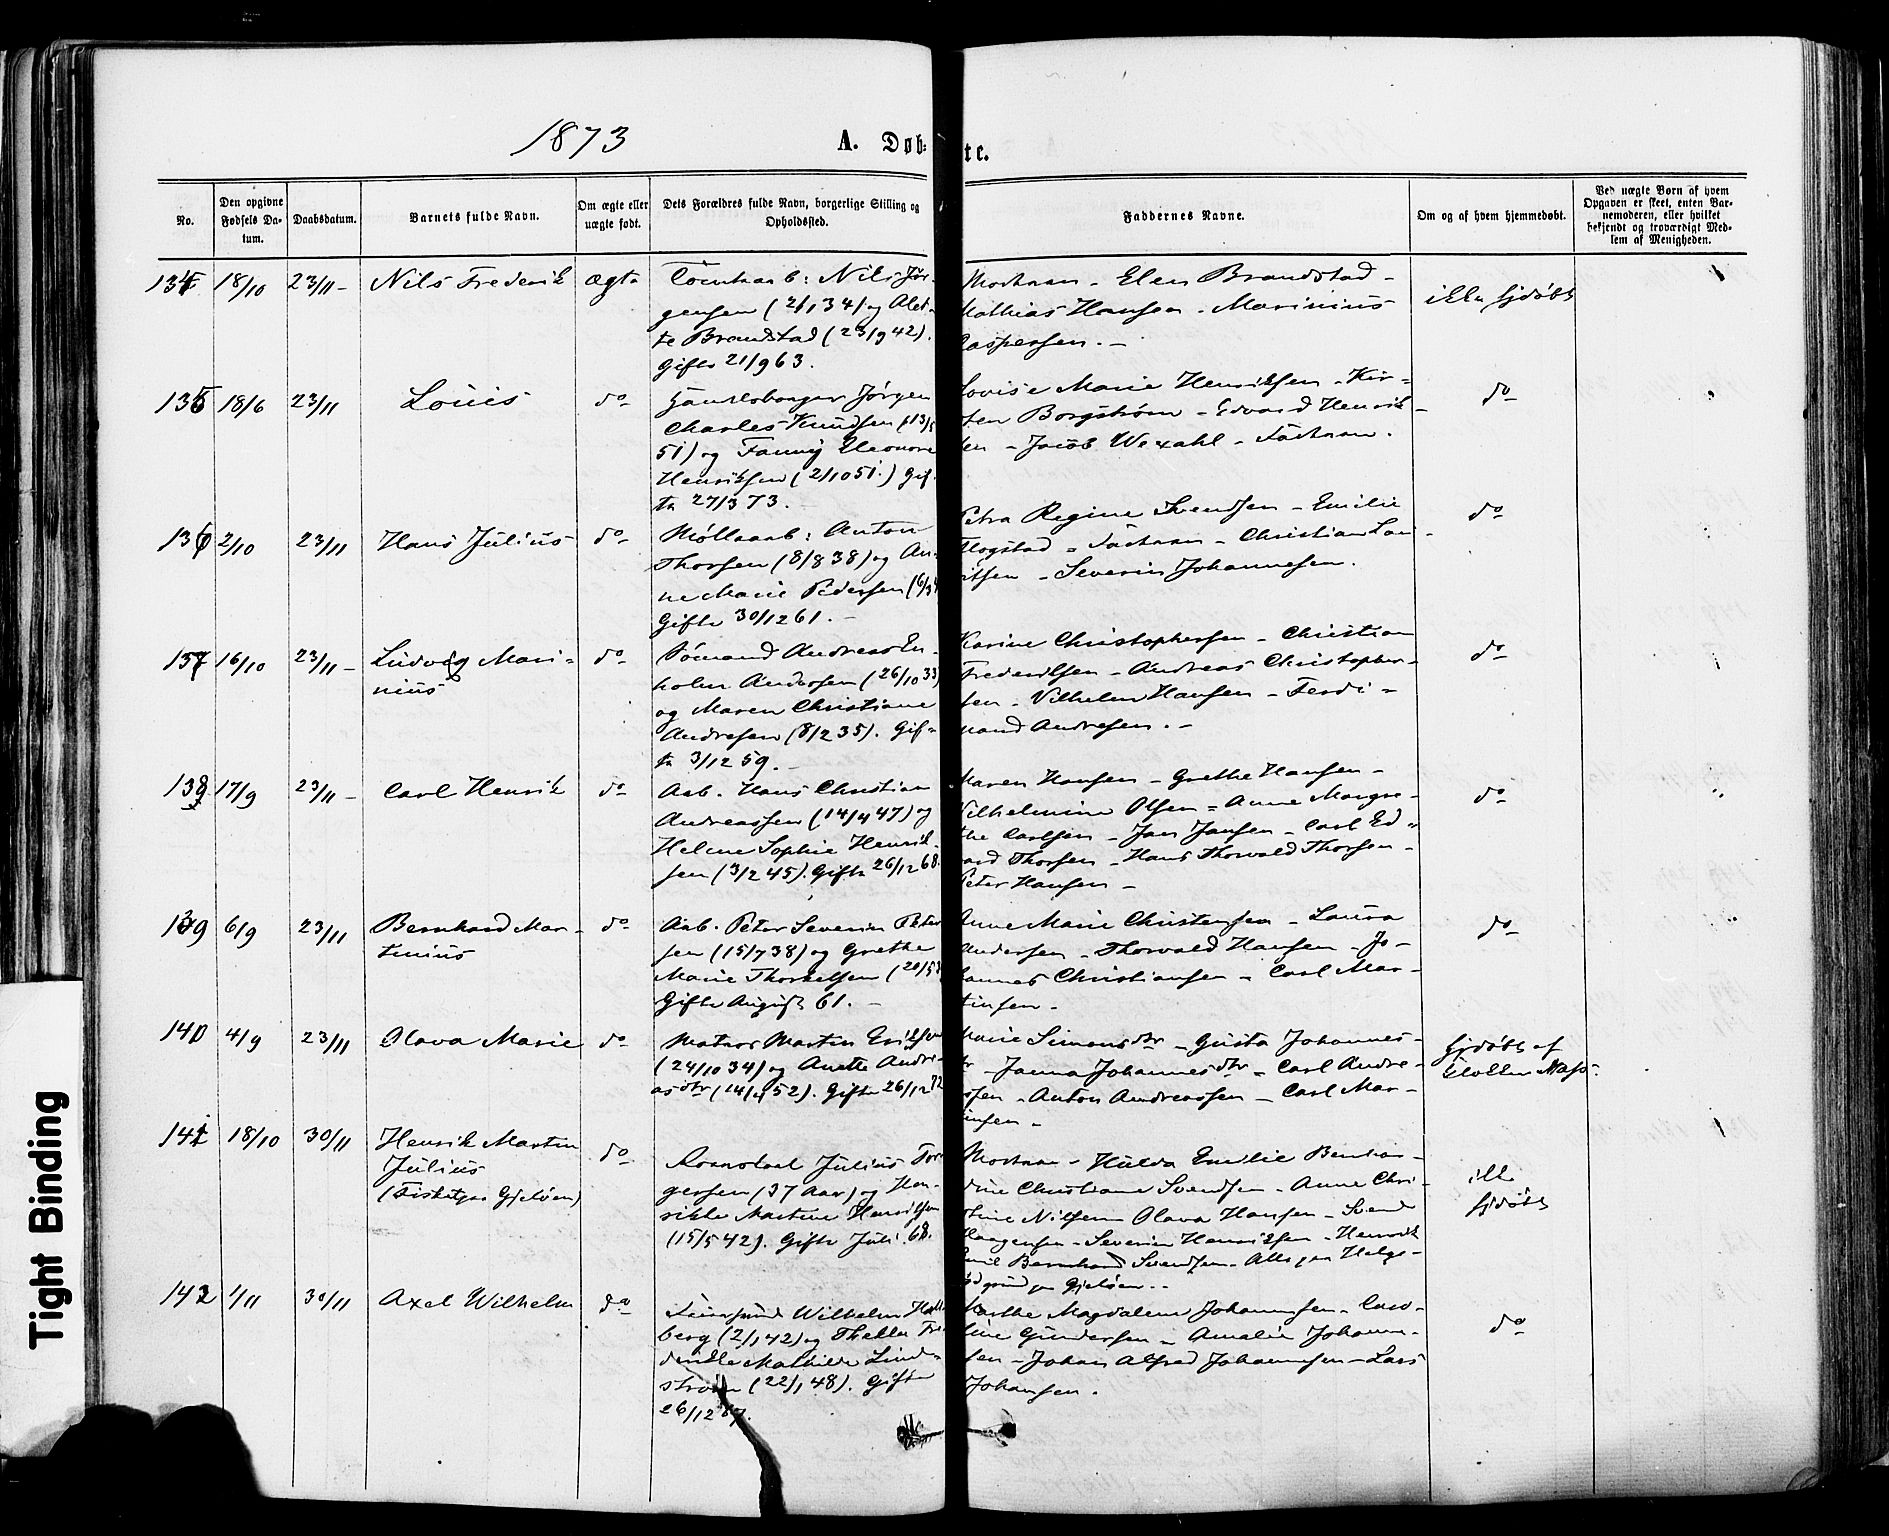 1873
A. Døb-
te.
No.
Den opgivne Fødsels Da-tum.
Daabsdatum.
Barnets fulde Navn.
Om ægte eller uægte født.
Dets Forældres fulde Navn, borgerlige Stilling og Opholdssted.
Faddernes Navne.
Om og af hvem hjemmedøbt.
Ved uægte Børn af hvem Opgaven er skeet, enten Bar-nemoderen, eller hvilket bekjendt og troværdigt Med-lem af Menigheden.
134 18/10 23/11 - Nils Frederik ægte
Tomtearb: Nils Jør-
gensen (2/1 34) og Alet-
te Brandstad (23/9 42).
Gifte 21/9 63.
Moderen - Elen Brandstad -
Mathias Hansen - Marinius
Caspersen. -
ikke hjdøbt
135 18/6 23/11 Louis do
Jørgen
Charles Knudsen (13/
51) og Fanny Eleonore
Henriksen (2/10 51.) Gif-
te 27/3 73.
Lovise Marie Henriksen - Kir-
sten Borgstrøm - Edvard Henrik-
sen - Jacob Wexahl - Faderen.
do
136 2/10 23/11 Hans Julius do
Møllearb: Anton
Thorsen (8/8 38) og An-
ne Marie Pedersen (6/
Gifte 30/12 61. -
Petra Regine Svendsen - Emilie
Flogstad - Faderen - Christian Lau-
ritsen - Severin Johannesen.
do
137 16/10 23/11 - Ludvig Mari-
nius
do
Sømand Andreas En-
holm Andersen (26/10 33)
og Maren Christiane
Andresen (8/2 35). Gif-
te 3/12 59. -
Karine Christophersen - Christian
Fredriksen - Andreas Christopher-
sen - Vilhelm Hansen - Ferdi-
nand Andresen. -
do
138 17/9 23/11 - Carl Henrik do
Arb. Hans Christian
Andreassen (14/4 47) og
Helene Sophie Henrik-
sen (3/2 45). Gifte 26/12 68.
Maren Hansen - Grethe Hansen -
Vilhelmine Olsen - Anne Margre-
the Carlsen - Jan Jansen - Carl Ed-
vard Thorsen - Hans Thorvald Thorsen -
Peter Hansen -
do
139 6/9 23/11 Bernhard Mar-
tinius
do
Arb. Peter Severin Peter
sen (15/7 38) og Grethe
Marie Thorkelsen (20/5
Gifte August 61. -
Anne Marie Christensen - Laura
Andersen - Thorvald Hansen - Jo-
hannes Christiansen - Carl Mar-
tinsen -
do
140 4/9 23/11 Olava Marie do
Matros Martin Eriksen
(24/10 34) og Anette Andre-
asdtr (14/4 52). Gifte 26/12 72
Marie Simonsdtr - Gusta Johannes-
dtr - Janna Johannesdtr - Carl Andre-
assen - Anton Andreassen - Carl Mar-
tinsen -
hjdøbt af
141 18/10 30/11 Henrik Martin
Julius
(Fisketgn Gjeløen)
do
Julius Tor
gersen (37 Aar) og Hen-
rikke Martine Henriksen
(15/5 42). Gifte Juli 68.
Moderen - Hulda Emilie Bentian-
dine Christiane Svendsen - Anne Chri-
stine Nilsen Olava Hansen - Svend
Haagensen - Severin Henriksen - Henrik
Emil Bernhard Svendsen - Alle paa Helge-
rødgrund paa Gjeløen. -
ikke
hjdøbt
142 1/11 30/11 Axel Wilhelm do
Wilhelm
berg (2/1 42) og Thella Fre
derikke Mathilde Lind-
strøm (22/1 48). Gifte
26/12 67.
Marthe Magdalene Johannesen - Caro-
line Gundersen - Amalie Johann-
sen - Johan Alfred Johannesen - Lars
Johansen.
do
Tight Binding